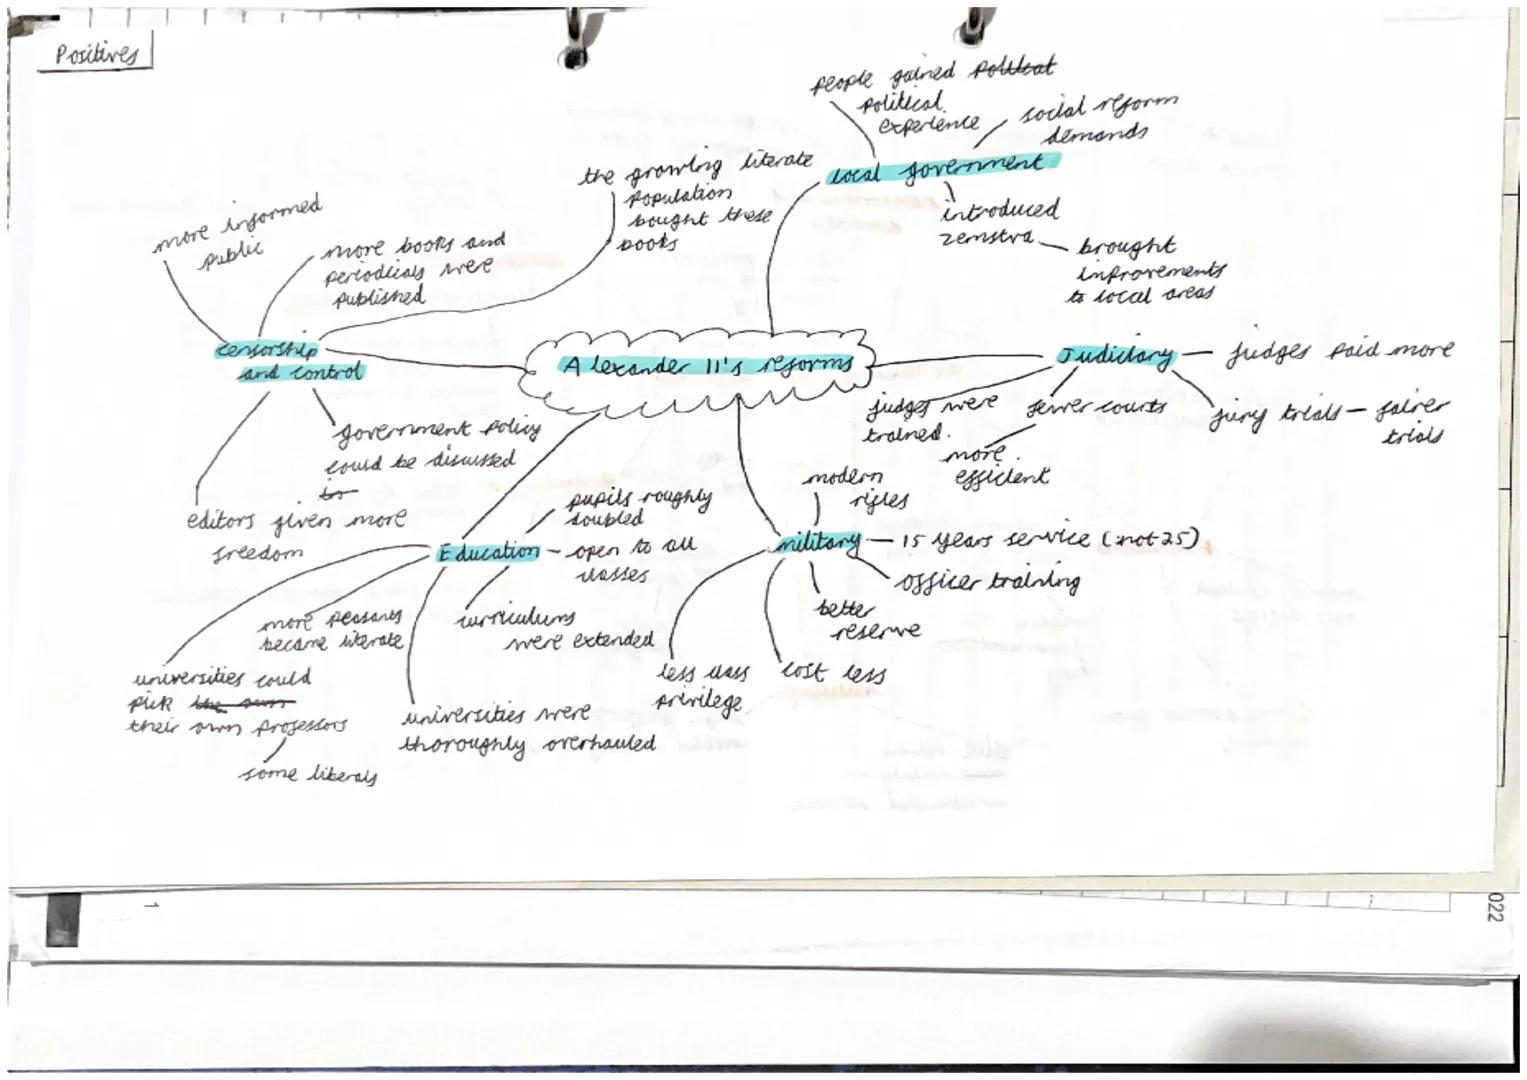 Positives
people gained political
political
experience
social reform
demands
local government
introduced
zemstva
brought
improvements
to local areas
the growing literate
population
bought these
books
more informed
public
more books and
periodicals were
published
censorship
and control
government policy
could be discussed
editors given more
freedom
Alexander II's reforms
Judiciary
judges paid more
judges were
trained.
fewer courts
more
efficient
jury trials - fairer
trials
Education
pupils roughly
doubled
open to all
classes
curriculums
were extended
more peasants
became literate
universities could
pick the own
their own professors
some liberals
universities were
thoroughly overhauled
military
modern
rifles
15 years service (not 25)
officer training
better
reserve
cost less
less class
privilege
022